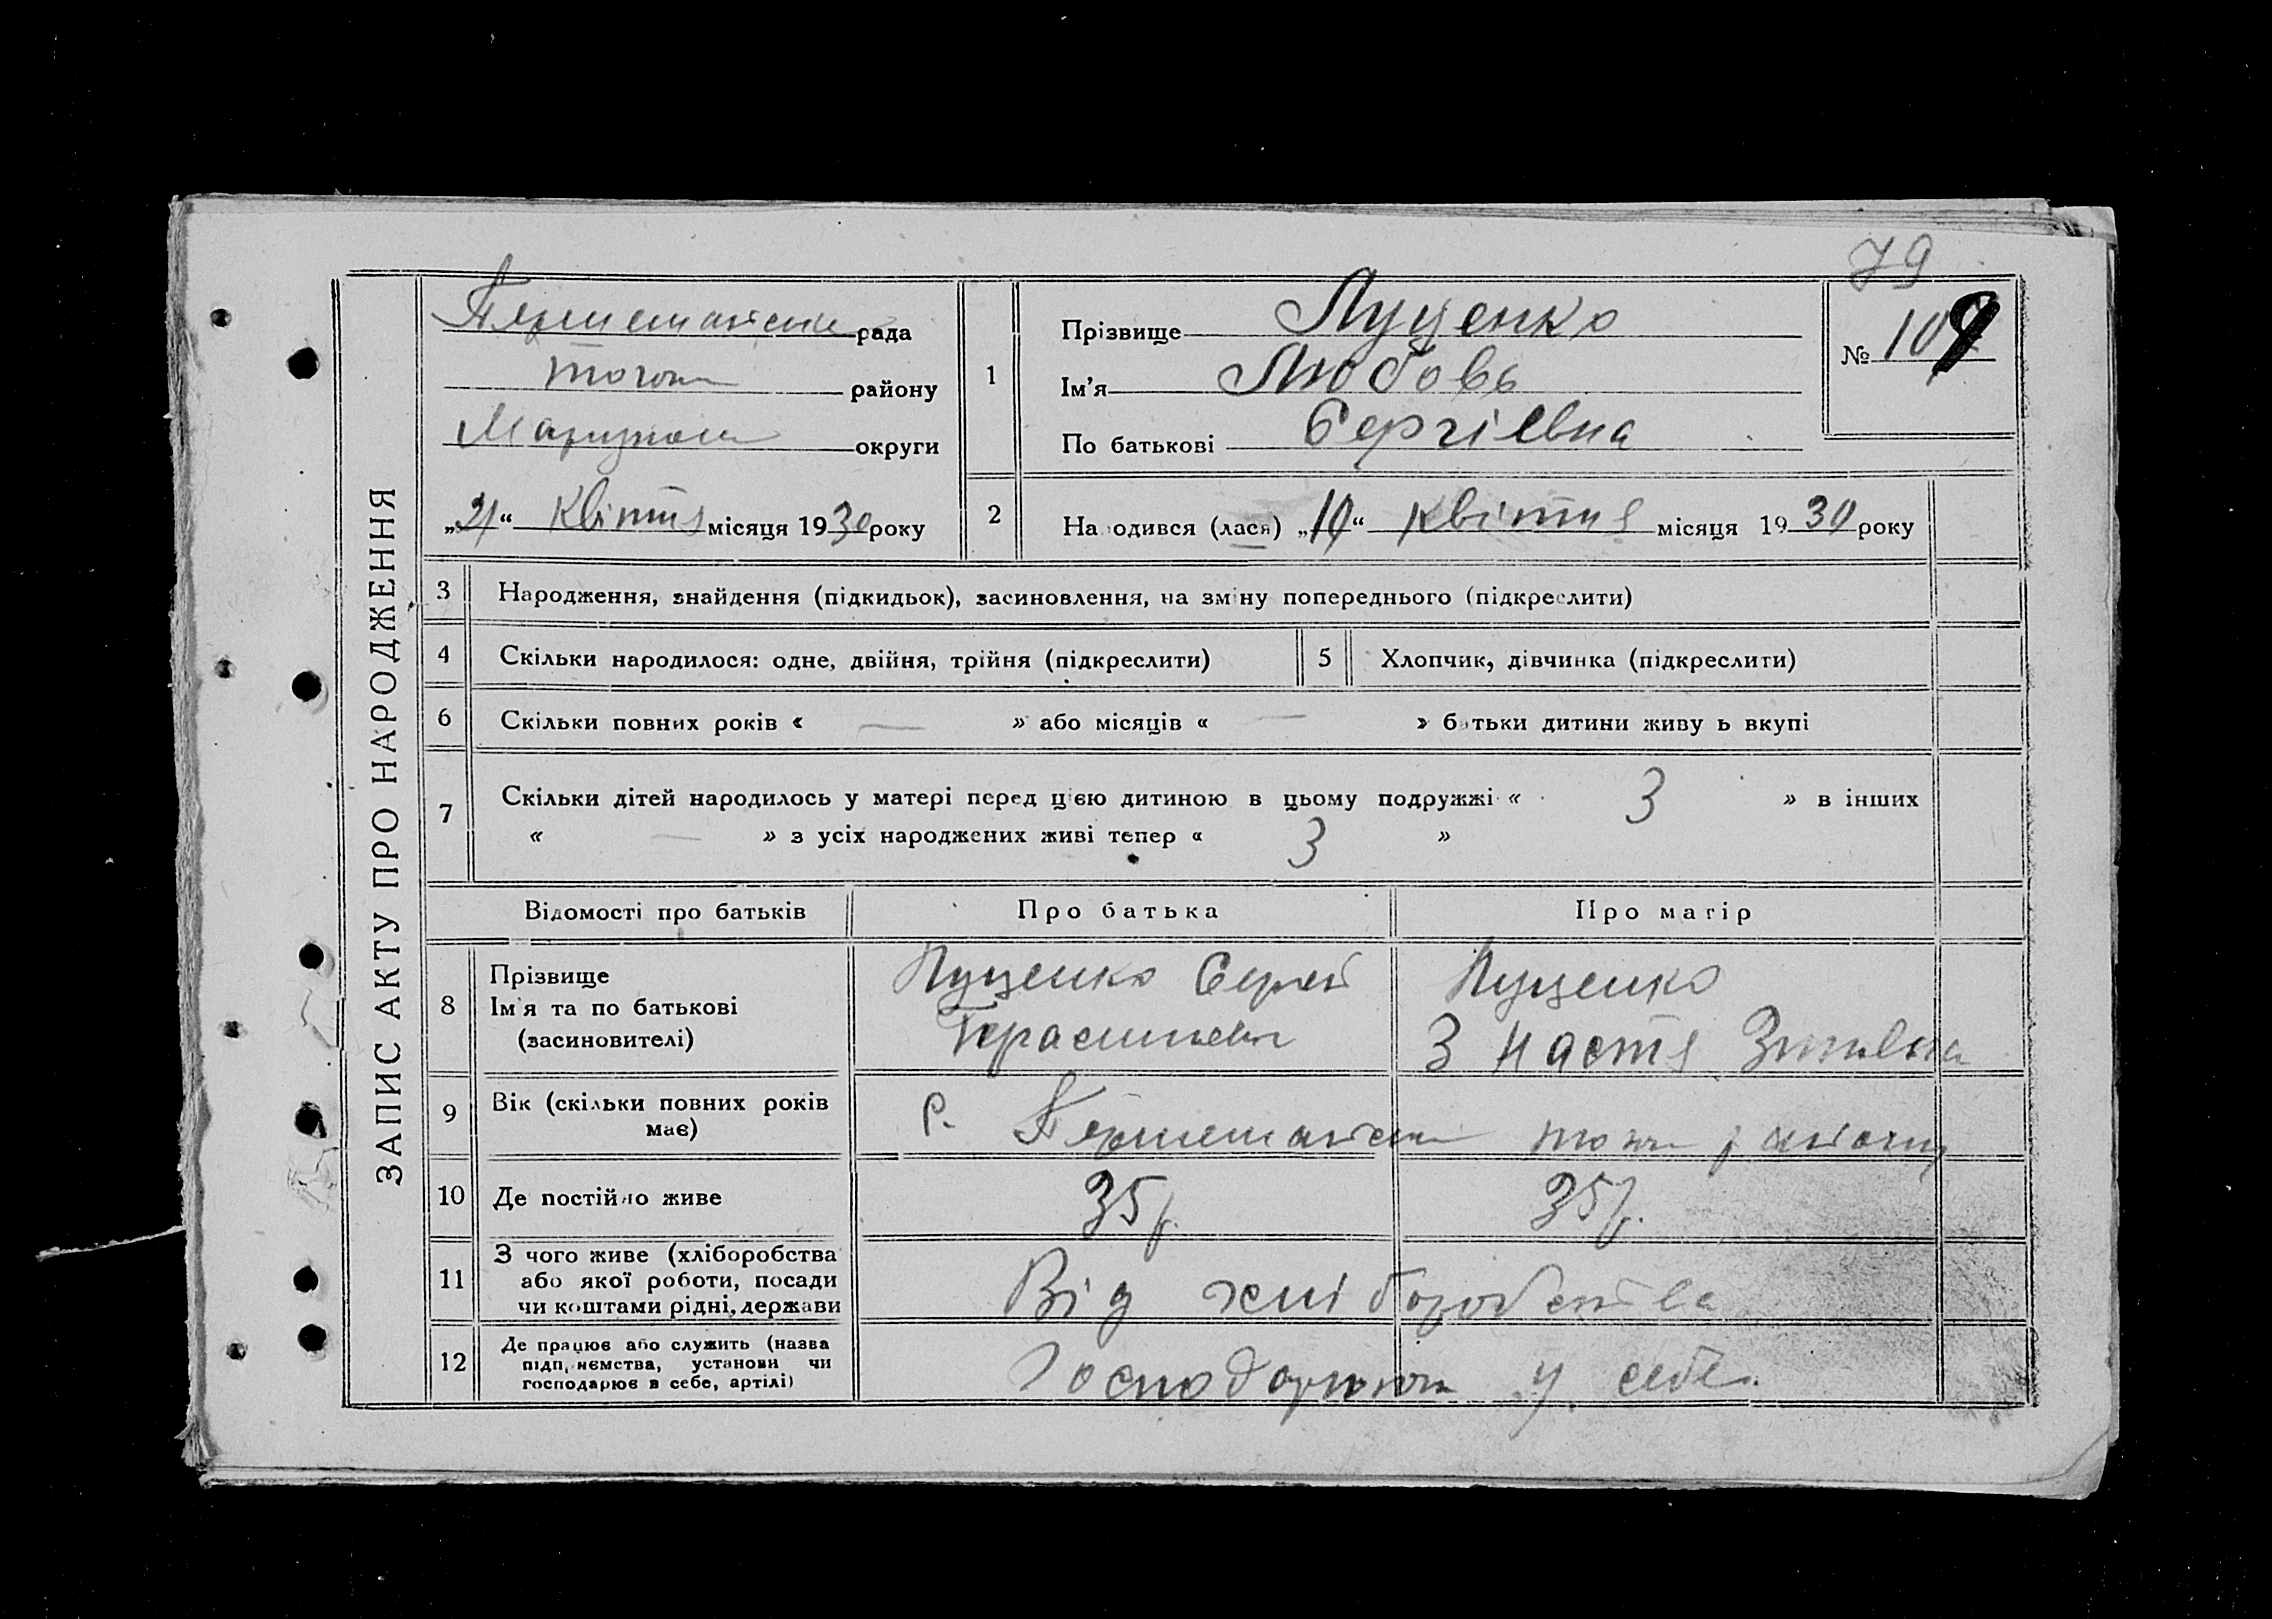 79
ЗАПИС АКТУ ПРО НАРОДЖЕННЯ
Першемайська рада
району
Маріупол округи
„21“ Квітня місяця 1930 року
1
Прізвище Луценко
Ім’я Любовь
По батькові Сергіевна
№ 109
2
Народився (лася) „10“ Квітня місяця 1930 року
3 Народження, знайдення (підкидьок), засиновлення, на зміну попереднього (підкреслити)
4 Скільки народилося: одне, двійня, трійня (підкреслити)
5 Хлопчик, дівчинка (підкреслити)
6 Скільки повних років « — » або місяців « — » батьки дитини живуть вкупі
7 Скільки дітей народилось у матері перед цією дитиною в цьому подружжі « 3 » в інших
« — » з усіх народжених живі тепер « 3 »
Відомості про батьків Про батька Про матір
8 Прізвище
Ім’я та по батькові
(засновителі)
Луценко Сергей
Герасимович
Луценко
Настя
9 Вік (скільки повних років
має)
Р. Першемайськ району
10 Де постійно живе 35р. 35р.
11 З чого живе (хліборобства
або якої роботи, посади
чи коштами рідні, держави
Від хліборобства
12 Де працює або служить (назва
підприємства, установи чи
господарює в себе, артілі)
Господарюють у себе.